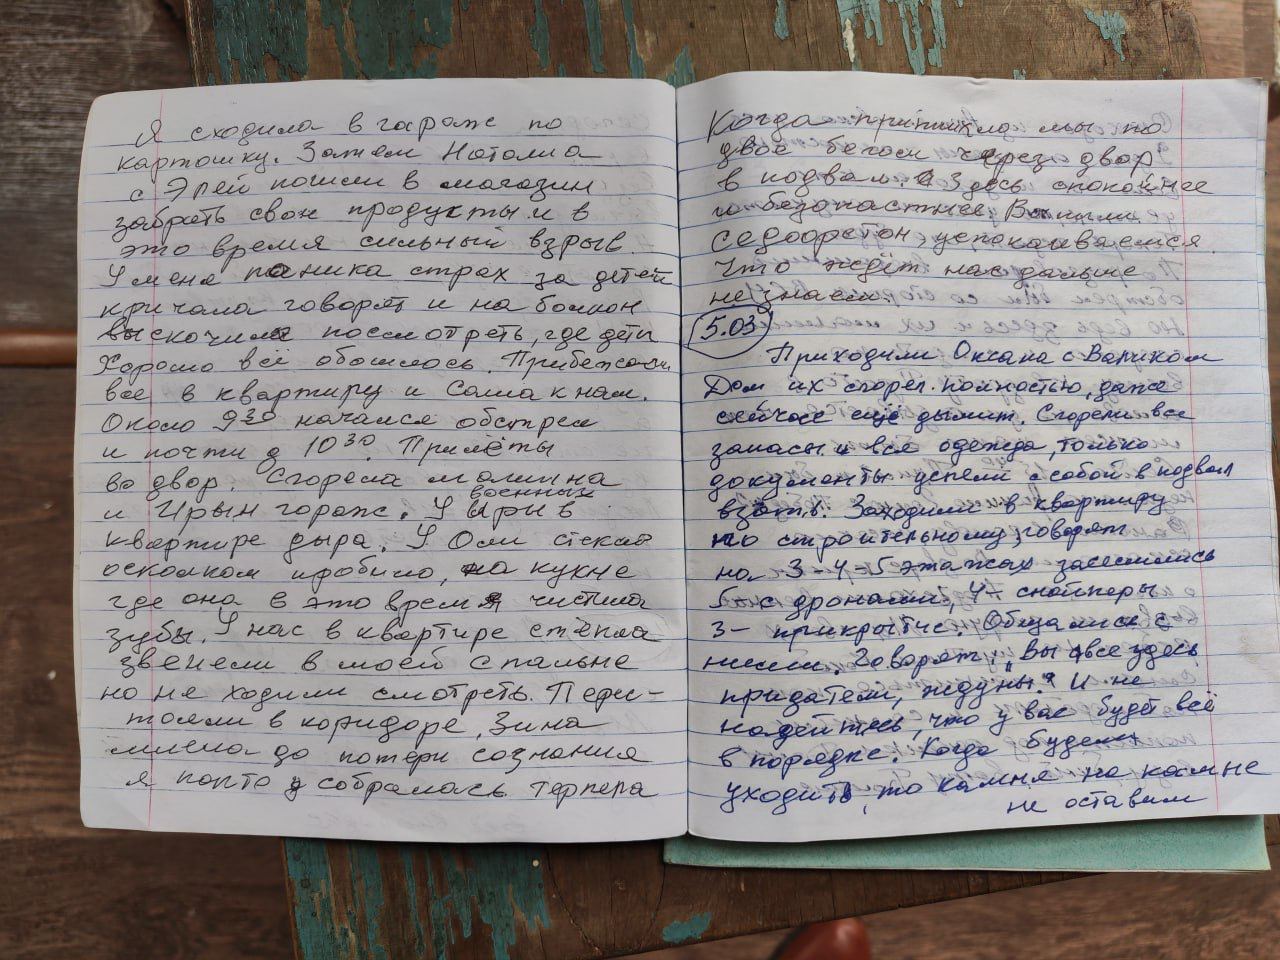 Я сходила в гараж по
картошку. Затем Наталия
с Элей пошли в магазин
забрать свои продукты и в
это время сильный взрыв.
У меня паника страх за детей
кричала говорят и на балкон
выскочила посмотреть, где дети
Хорошо всё обошлось. Прибежали
все в квартиру и Саша к нам.
Около 9 30 начался обстрел
и почти д 10 30. Прилёты
во двор. Сгорела машина
военных
и Ирын гараж. У Иры в
квартире дыра. У Оли стекло
осколком пробило, на кухне
где она в это время чистила
зубы. У нас в квартире стёкла
звенели в моей спальне
но не ходили смотреть. Пере-
тояли в коридоре. Зина
млела до потери сознания
я по собралась терпела
Когда притихло мы по
двое бегом через двор
в подвал. Здесь спокойнее
и безопастнее. Выпили
успокаиваемся.
Что ждёт нас дальше
не знаем.
5.03
Приходили Оксана с Валиком
Дом их сгорел полностью, даже
сейчас ещё дымит. Сгорели все
запасы и вся одежда, только
документы успели с собой в подвал
взять. Заходили в квартиру
по строительному, говорят
на 3-4-5 этажах заселились
5 с дронами, 4 снайперы
3 - прикрытие. Общались с
ними. Говорят, "Вы все здесь
придатели, ждуны". И не
надейтесь, что у вас будет всё
в порядке. Когда будем
уходить, то камня на камне
не оставим